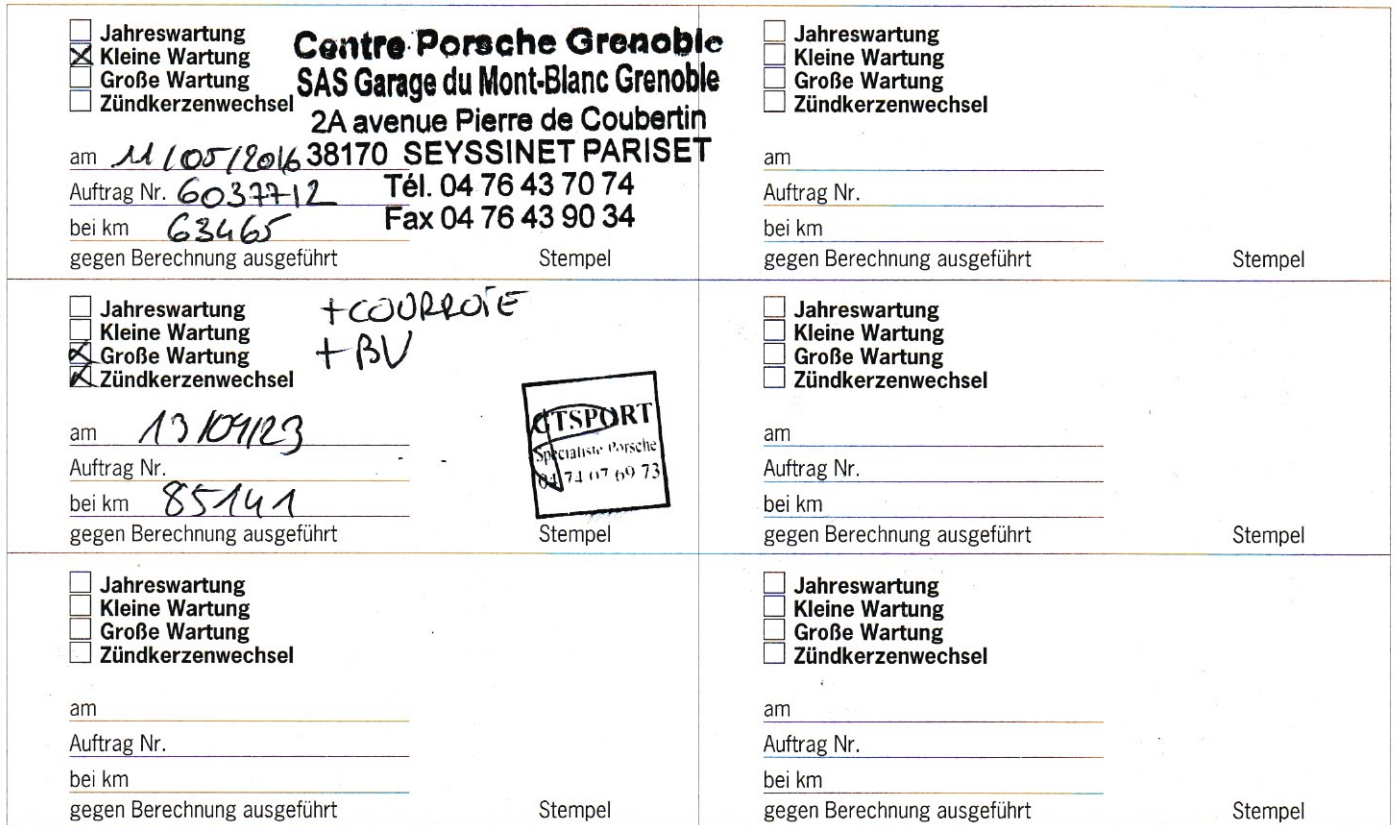 Jahreswartung
Kleine Wartung
Große Wartung
Zündkerzenwechsel
Centre Porsche Grenoble
SAS Garage du Mont-Blanc Grenoble
2A avenue Pierre de Coubertin
38170 SEYSSINET PARISET
Tél. 04 76 43 70 74
Fax 04 76 43 90 34
am 11/05/2016
Auftrag Nr. 6037712
bei km 63465
gegen Berechnung ausgeführt Stempel
Jahreswartung
Kleine Wartung
Große Wartung
Zündkerzenwechsel
am
Auftrag Nr.
bei km
gegen Berechnung ausgeführt Stempel
Jahreswartung
Kleine Wartung
Große Wartung
Zündkerzenwechsel
+COURROIE
+BV
am 13/04/23
Auftrag Nr.
bei km 85141
GTSPORT
Specialiste Porsche
04 74 07 69 73
gegen Berechnung ausgeführt Stempel
Jahreswartung
Kleine Wartung
Große Wartung
Zündkerzenwechsel
am
Auftrag Nr.
bei km
gegen Berechnung ausgeführt Stempel
Jahreswartung
Kleine Wartung
Große Wartung
Zündkerzenwechsel
am
Auftrag Nr.
bei km
gegen Berechnung ausgeführt Stempel
Jahreswartung
Kleine Wartung
Große Wartung
Zündkerzenwechsel
am
Auftrag Nr.
bei km
gegen Berechnung ausgeführt Stempel